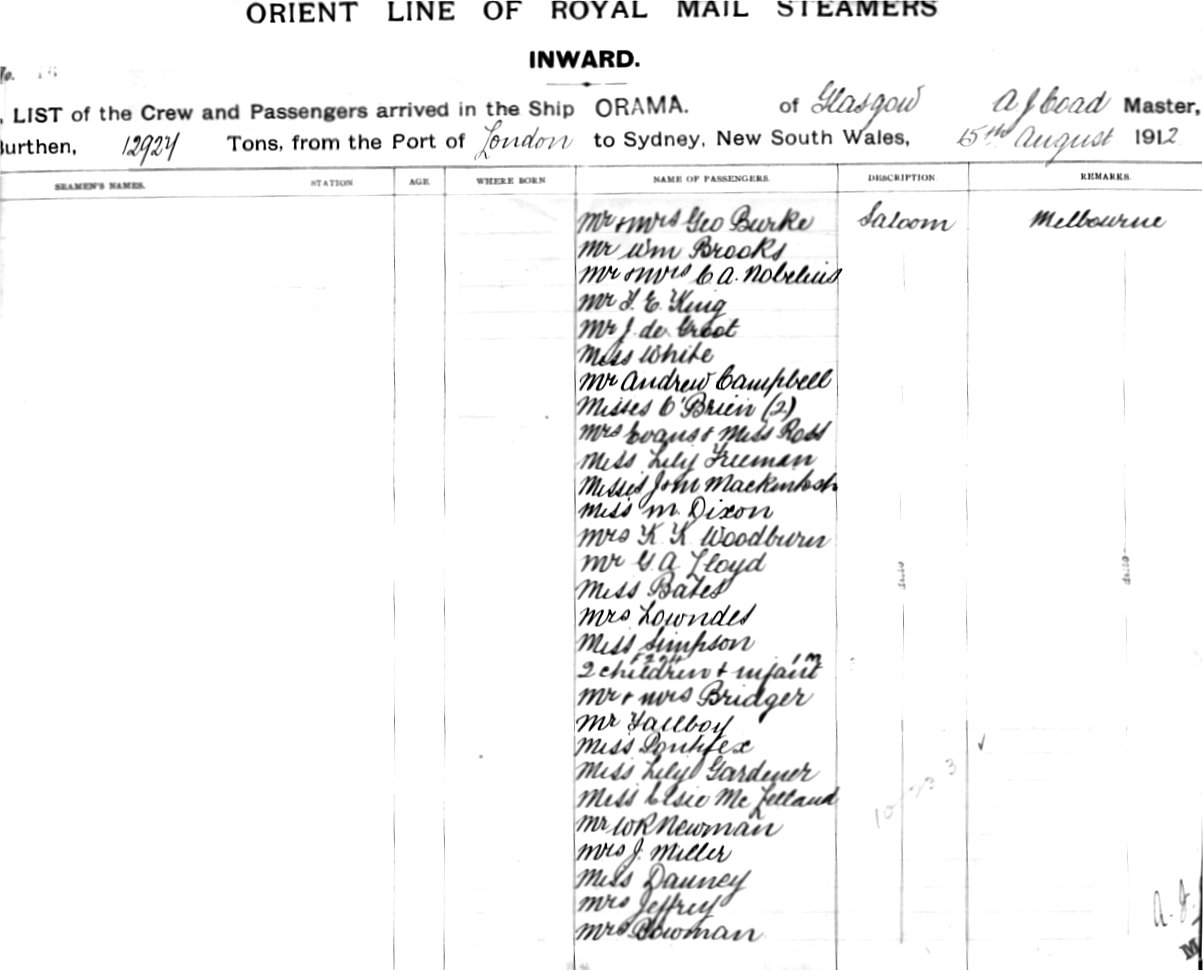 ORIENT LINE OF ROYAL MAIL STEAMERS
INWARD.
LIST of the Crew and Passengers arrived in the Ship ORAMA. of Glasgow A J Coad Master,
Burthen, 12924 Tons, from the Port of London to Sydney, New South Wales, 15th August 1912
SEAMEN'S NAMES. STATION AGE WHERE BORN NAME OF PASSENGERS. DESCRIPTION REMARKS.
Mr & Mrs Geo Burke Saloom Melbourne
Mr Wm Brooks
Mr & Mrs C. A. Nobelius
Mr F. E. King
Mr J. de Groot
Miss White
Mr Andrew Campbell
Misses O'Brien (2)
Mrs Evans & Miss Ross
Miss Lily Freeman
Misses J & M Mackintosh
Miss M. Dixon
Mrs K. K. Woodburn
Mr G. A. Lloyd
Miss Bates
Mrs Lowndes
Miss Simpson
2 children & infant
Mr & Mrs Bridger
Mr Tallboy
Miss Pontifex
Miss Lily Gardener
Miss Elsie McLelland
Mr W R Newman
Mrs J. Miller
Miss Dauney
Mrs Jeffrey
Mrs Bowman